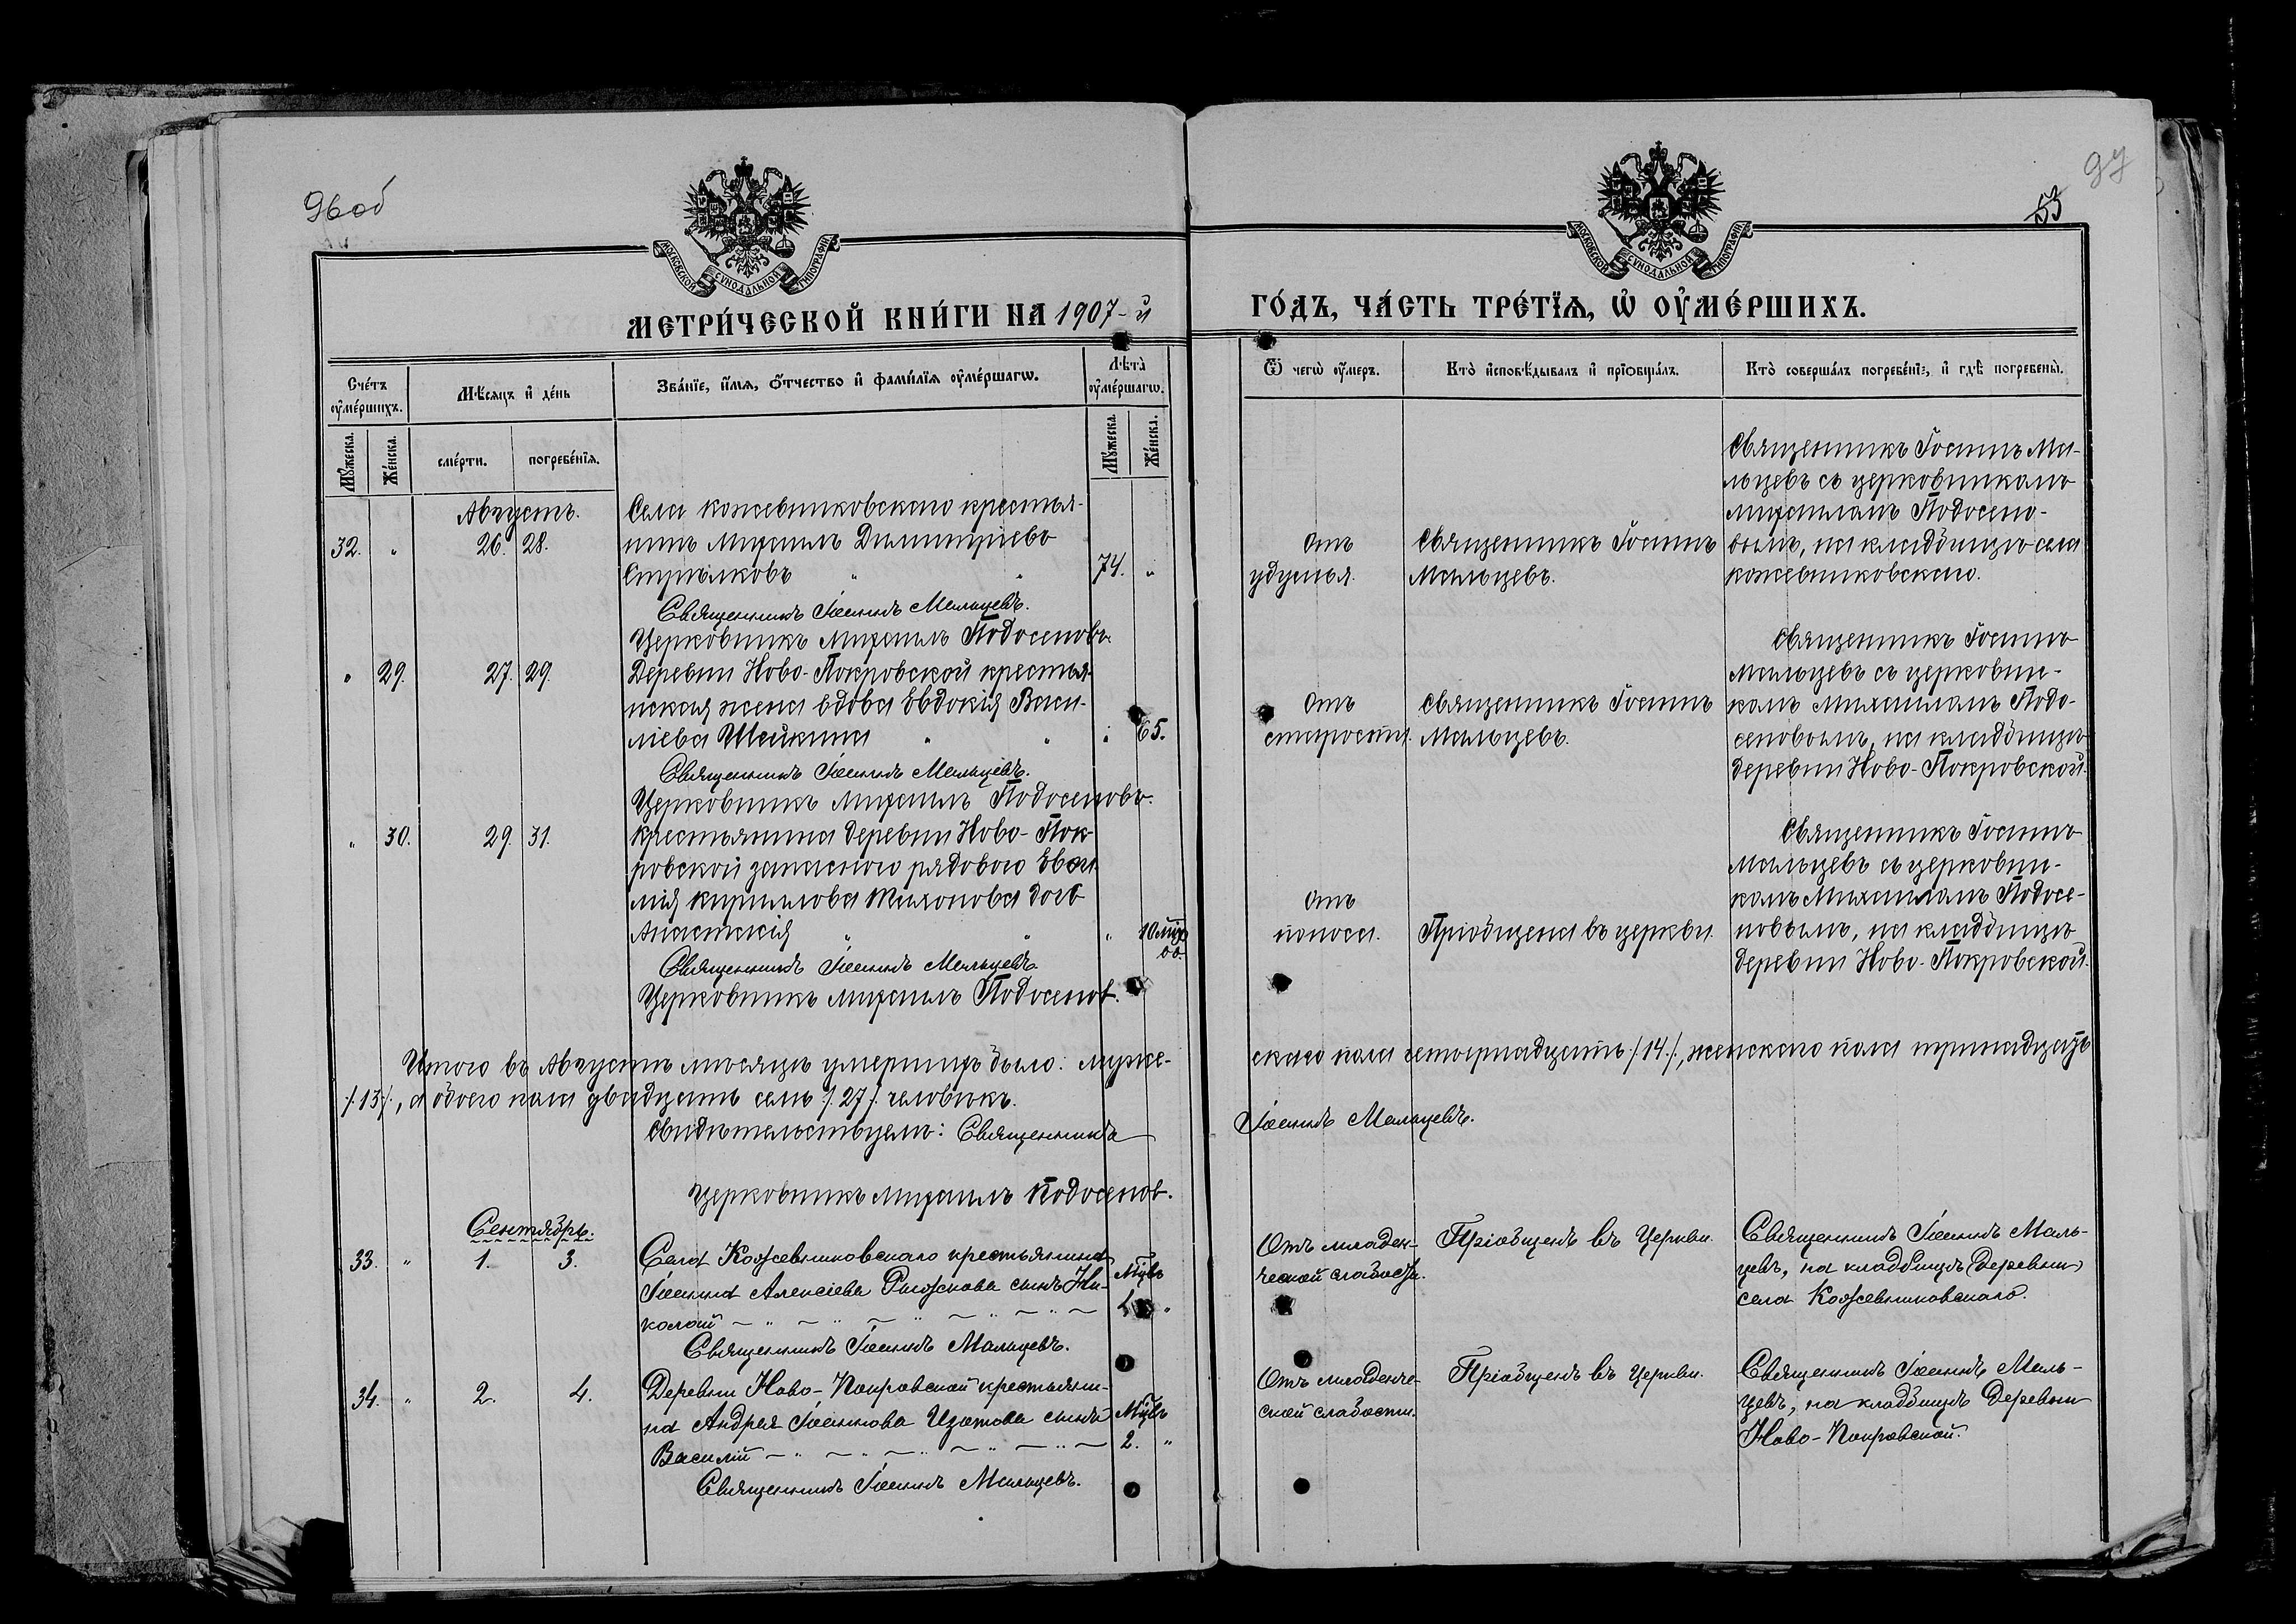 96об
97
53
МОСКОВСКОЙ СѴНОДАЛЬНОЙ ТИПОГРАФІИ
МОСКОВСКОЙ СѴНОДАЛЬНОЙ ТИПОГРАФІИ
МЕТРИ́ЧЕСКОЙ КНИ́ГИ НА 1907-й
ГО́ДЪ, ЧА́СТЬ ТРЕ́ТЇѦ, Ѡ҆ ОУ҆МЕ́РШИХЪ.
Сче́тъ оу҆ме́ршихъ.
Мѣ́сяцъ и҆ де́нь
Зва́нїе, и҆́мѧ, ѻ҆́тчество и҆ фами́лїѧ оу҆ме́ршагѡ.
Лѣта̀ оу҆ме́ршагѡ.
Ѿ чегѡ̀ оу҆́меръ.
Кто̀ и҆сповѣ́дывалъ и҆ прїѡбща́лъ.
Кто̀ соверша́лъ погребе́нїе, и҆ гдѣ̀ погребены̀.
Мꙋ́жеска.
Же́нска.
сме́рти.
погребе́нїѧ.
Мꙋ́жеска.
Же́нска.
Августъ.
32. " 26. 28.
Села Кожевниковскаго крестья-
нинъ Михаилъ Димитріевъ
Стрѣлковъ " " 74. "
Священникъ Іоаннъ Мальцевъ.
Церковникъ Михаилъ Подосеновъ.
Отъ
удушья.
Священникъ Іоаннъ
Мальцевъ.
Священникъ Іоаннъ Ма-
льцевъ съ церковникомъ
Михаиломъ Подосено-
вымъ, на кладбищѣ села
Кожевниковскаго.
" 29. 27. 29.
Деревни Ново-Покровской крестья-
нская жена вдова Евдокія Васи-
ліева Шейкина " " " 65.
Священникъ Іоаннъ Мальцевъ.
Церковникъ Михаилъ Подосеновъ.
Отъ
старости.
Священникъ Іоаннъ
Мальцевъ.
Священникъ Іоаннъ
Мальцевъ съ церковни-
комъ Михаиломъ Подо-
сеновымъ, на кладбищѣ
деревни Ново-Покровской.
" 30. 29. 31.
Крестьянина деревни Ново-Пок-
ровской запаснаго рядового
мія Кириллова Тихонова дочь
Анастасія " " " 10
Священникъ Іоаннъ Мальцевъ.
Церковникъ Михаилъ Подосенов.
Отъ
поноса.
Пріобщена въ церкви.
Священникъ Іоаннъ
Мальцевъ съ церковни-
комъ Михаиломъ Подосе-
новымъ, на кладбищѣ
деревни Ново-Покровской.
Итого въ Августѣ мѣсяцѣ умершихъ было: муже-
скаго пола четырнадцать /.14./, женскаго пола тринадцать
/.13./, а обоего пола двадцать семь /.27./. человѣкъ.
Свидѣтельствуемъ: Священникъ
Іоаннъ Мальцевъ.
Церковникъ Михаилъ Подосенов.
Сентябрь.
33. " 1. 3.
Села Кожевниковскаго крестьянина
Іоанна Алексіева Рыжкова сынъ Ни-
колай " " " " "
Священникъ Іоаннъ Мальцевъ.
Отъ младен-
ческой слабости.
Пріобщенъ въ Церкви.
Священникъ Іоаннъ Маль-
цевъ, на кладбищѣ (деревни)
села Кожевниковскаго.
34. " 2. 4.
Деревни Ново-Покровской крестьяни-
на Андрея Іоаннова Изотова сынъ
Василій " " " " " 2. "
Священникъ Іоаннъ Мальцевъ.
Отъ младенче-
ской слабости.
Пріобщенъ въ Церкви.
Священникъ Іоаннъ Маль-
цевъ, на кладбищѣ Деревни
Ново-Покровской.